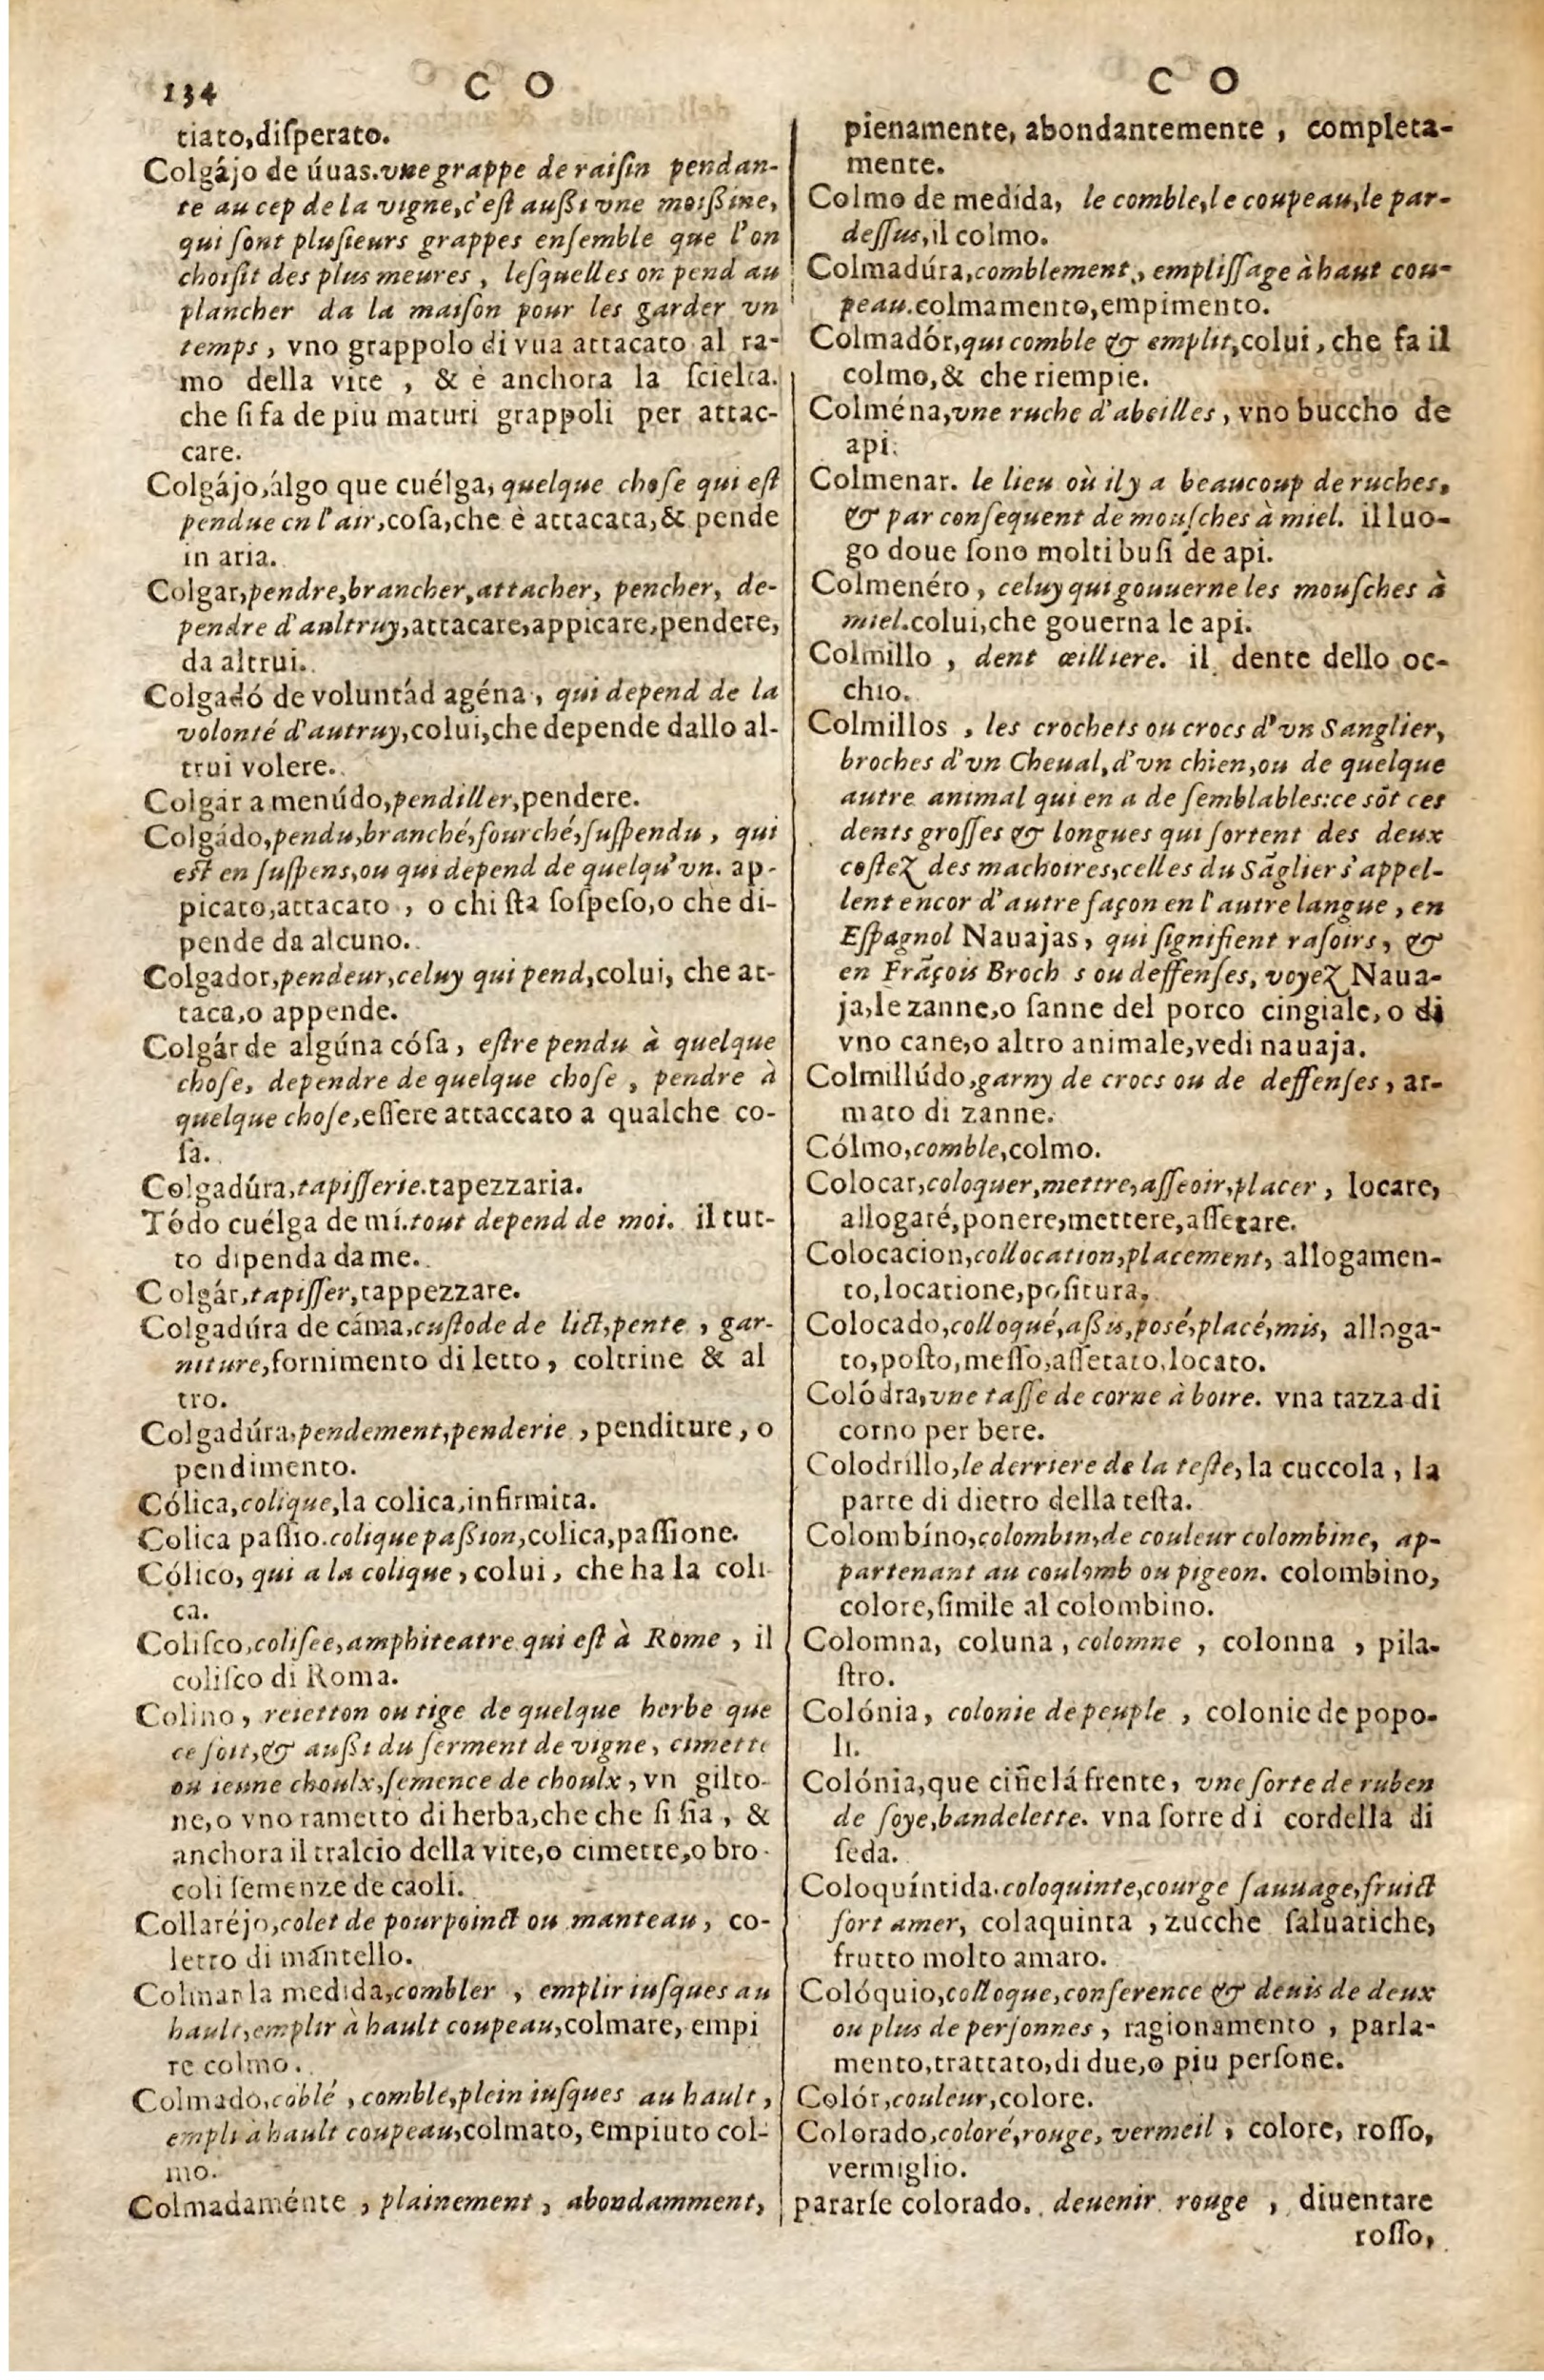 134 C O
tiato,diſperato.
Colgájo de úuas.vne grappe de raiſin pendan-
te au cep de la vigne,c'eſt außi vne moißine,
qui ſont pluſieurs grappes enſemble que l'on
choiſit des plus meures, leſquelles on pend au
plancher da la maiſon pour les garder vn
temps, vno grappolo di vua attacato al ra-
mo della vite, & è anchora la ſcielta.
che ſi fa de piu maturi grappoli per attac-
care.
Colgájo,álgo que cuélga, quelque choſe qui eſt
pendue en l'air,coſa,che è attacata,& pende
in aria.
Colgar,pendre,brancher,attacher, pencher, de-
pendre d'aultruy,attacare,appicare,pendere,
da altrui.
Colgadó de voluntád agéna, qui depend de la
volonté d'autruy,colui,che depende dallo al-
trui volere.
Colgár a menúdo,pendiller,pendere.
Colgádo,pendu,branché,fourché,ſuſpendu, qui
est en ſuſpens,ou qui depend de quelqu'vn. ap-
picato,attacato, o chi ſta ſoſpeſo,o che di-
pende da alcuno.
Colgador,pendeur,celuy qui pend,colui, che at-
taca,o appende.
Colgár de algúna cóſa, eſtre pendu à quelque
choſe, dependre de quelque choſe, pendre à
quelque choſe,eſſere attaccato a qualche co-
ſa.
Colgadúra,tapiſſerie.tapezzaria.
Tódo cuélga de mí.tout depend de moi. il tut-
to dipenda da me.
Colgár,tapiſſer,tappezzare.
Colgadúra de cáma,cuſtode de lict,pente, gar-
niture,fornimento di letto, coltrine & al
tro.
Colgadúra,pendement,penderie, penditure, o
pendimento.
Cólica,colique,la colica,infirmita.
Colica paſſio.colique paßion,colica,paſſione.
Cólico, qui a la colique, colui, che ha la coli-
ca.
Coliſco,coliſee,amphiteatre qui eſt à Rome, il
coliſco di Roma.
Colino, reietton ou tige de quelque herbe que
ce ſoit,& außi du ſerment de vigne, cimette
ou ieune choulx,ſemence de choulx, vn gilto-
ne,o vno rametto di herba,che che ſi ſia, &
anchora il tralcio della vite,o cimette,o bro-
coli ſemenze de caoli.
Collaréjo,colet de pourpoinct ou manteau, co-
letto di mantello.
Colmar la medida,combler, emplir iuſques au
hault,emplir à hault coupeau,colmare, empi
re colmo.
Colmado,cõblé, comble,plein iuſques au hault,
empli à hault coupeau,colmato, empiuto col-
mo.
Colmadaménte, plainement, abondamment,
C O
pienamente, abondantemente, completa-
mente.
Colmo de medída, le comble,le coupeau,le par-
deſſus,il colmo.
Colmadúra,comblement, empliſſage à haut cou-
peau.colmamento,empimento.
Colmadór,qui comble & emplit,colui, che fa il
colmo,& che riempie.
Colména,vne ruche d'abeilles, vno buccho de
api.
Colmenar. le lieu où il y a beaucoup de ruches,
& par conſequent de mouſches à miel. il luo-
go doue ſono molti buſi de api.
Colmenéro, celuy qui gouuerne les mouſches à
miel.colui,che gouerna le api.
Colmillo, dent œilliere. il dente dello oc-
chio.
Colmillos, les crochets ou crocs d'vn Sanglier,
broches d'vn Cheual,d'vn chien,ou de quelque
autre animal qui en a de ſemblables:ce sõt ces
dents groſſes & longues qui ſortent des deux
coſtez des machoires,celles du Sãglier s'appel-
lent encor d'autre façon en l'autre langue, en
Eſpagnol Nauajas, qui ſignifient raſoirs, &
en Frãçois Broch s ou deffenſes, voyez Naua-
ja,le zanne,o ſanne del porco cingiale, o di
vno cane,o altro animale,vedi nauaja.
Colmillúdo,garny de crocs ou de deffenſes, ar-
mato di zanne.
Cólmo,comble,colmo.
Colocar,coloquer,mettre,aſſeoir,placer, locare,
allogaré,ponere,mettere,aſſetare.
Colocacion,collocation,placement, allogamen-
to,locatione,poſitura.
Colocado,colloqué,aßis,posé,placé,mis, alloga-
to,poſto,meſſo,aſſetato,locato.
Colódra,vne taſſe de corne à boire. vna tazza di
corno per bere.
Colodrillo,le derriere de la teſte, la cuccola, la
parte di dietro della teſta.
Colombíno,colombin,de couleur colombine, ap-
partenant au coulomb ou pigeon. colombino,
colore,ſimile al colombino.
Colomna, coluna, colomne, colonna, pila-
ſtro.
Colónia, colonie de peuple, colonie de popo-
li.
Colónia,que ciñe lá frente, vne ſorte de ruben
de ſoye,bandelette. vna ſorre di cordella di
ſeda.
Coloquíntida.coloquinte,courge ſauuage,fruict
fort amer, colaquinta, zucche ſaluatiche,
frutto molto amaro.
Colóquio,colloque,conference & deuis de deux
ou plus de perſonnes, ragionamento, parla-
mento,trattato,di due,o piu perſone.
Colór,couleur,colore.
Colorado,coloré,rouge, vermeil, colore, roſſo,
vermiglio.
pararſe colorado. deuenir rouge, diuentare
roſſo,